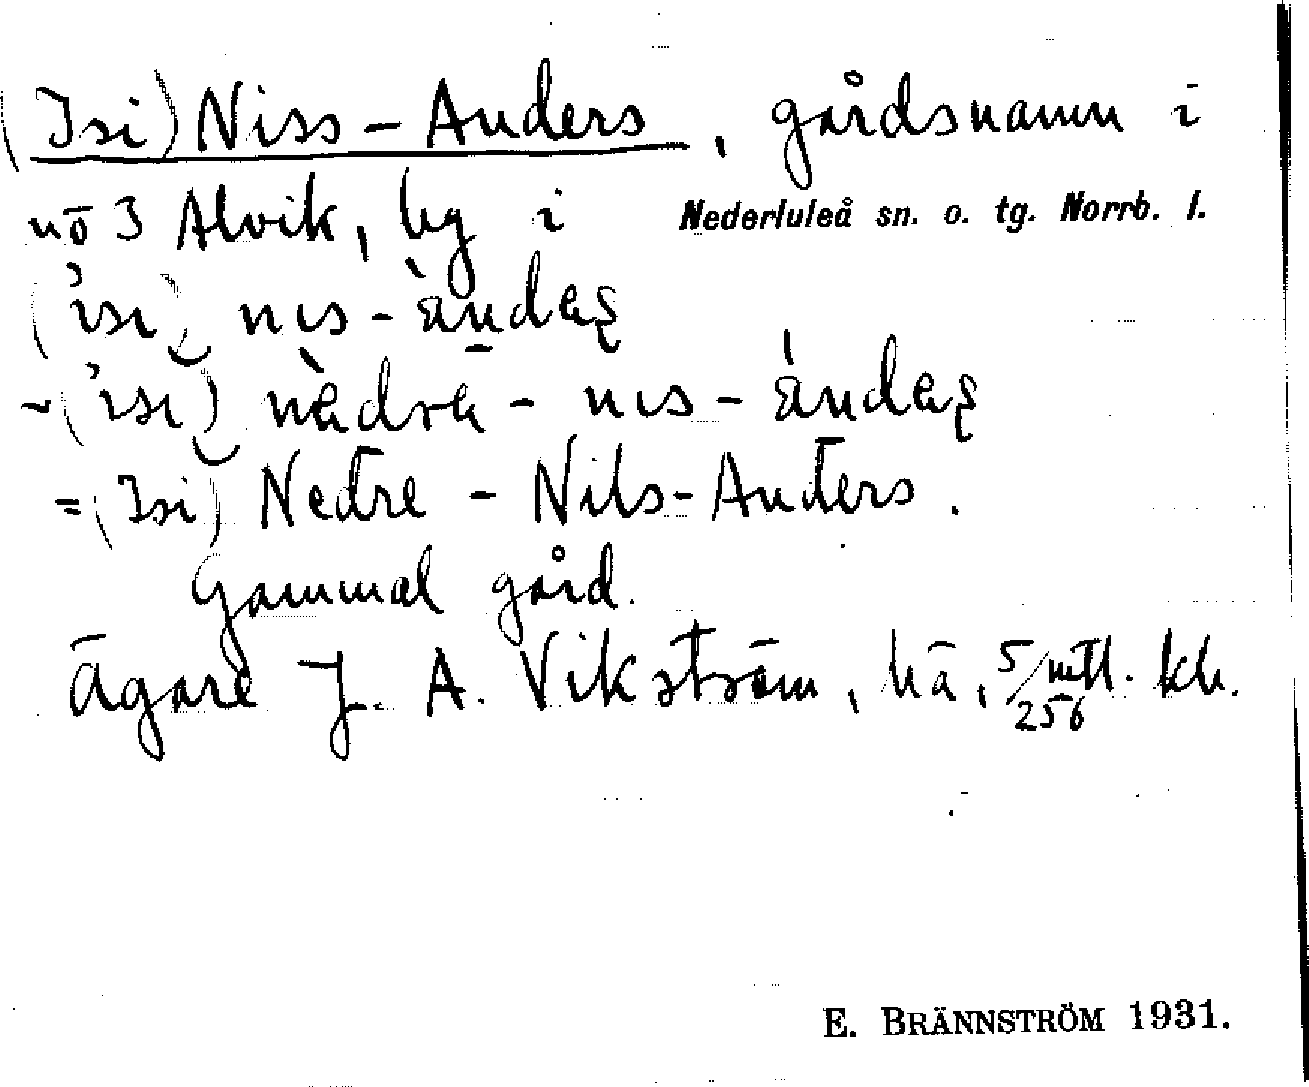 (Isi) Niss-Anders, gårdsnamn i
nö 3 Alvik, by i Nederluleå sn. o. tg. Norrb. l.
= (Isi) Nedre-Nils-Anders.
Gammal gård.
ägare J. A. Vikström, hä, 5/256 mtl. kh.
E. BRÄNNSTRÖM 1931.